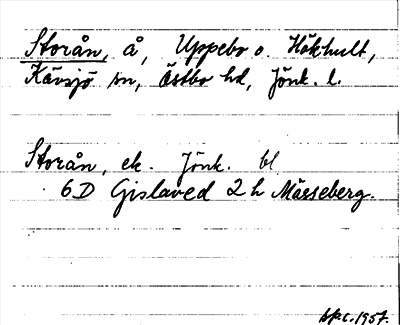 Storån, å, Uppebo o. Hökhult,
Kävsjö sn, Östbo hd, Jönk. l.
Storån, ek. Jönk. bl
6D Gislaved 2 h Mässeberg.
1957.